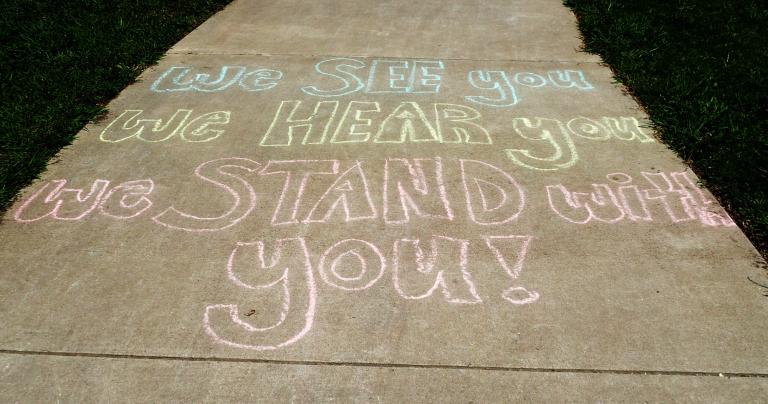 we SEE you
we HEAR you
we STAND with
you!